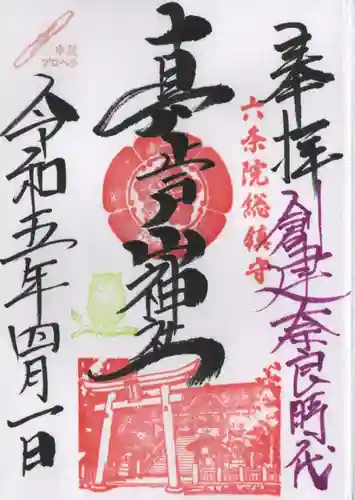 奉拝
創建奈良時代
六条院総鎮守
真止戸山神社
プロペラ
令和五年四月一日